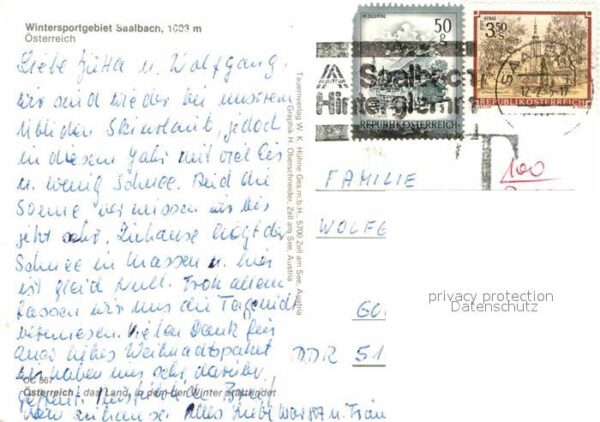 Wintersportgebiet Saalbach, 1003 m
Österreich
Liebe Jutta u. Wolfgang,
wir sind wieder bei unserem
üblichen Skiurlaub, jedoch
in diesem Jahr mit viel Eis
u. wenig Schnee. Auch die
Sonne vermissen wir bis
jetzt sehr. Zuhause liegt der
Schnee in Massen u. hier
ist gleich Null. Trotz allem
lassen wir uns die Tage nicht
vermiesen. Vielen Dank für
Euer liebes Weihnachtspaket
wir haben uns sehr darüber
gefreut.
von zuhause. Alles Liebe
OC 867
Österreich, das Land, in dem der Winter stattfindet
Tauernverlag W. K. Hühne Ges.m.b.H., 5700 Zell am See, Austria
Graphik H. Oberschneider, Zell am See, Austria
50 g
REPUBLIK ÖSTERREICH
3.50
REPUBLIK ÖSTERREICH
Saalbach
Hinterglemm
100
FAMILIE
WOLFG
GO
DDR 51
privacy protection
Datenschutz